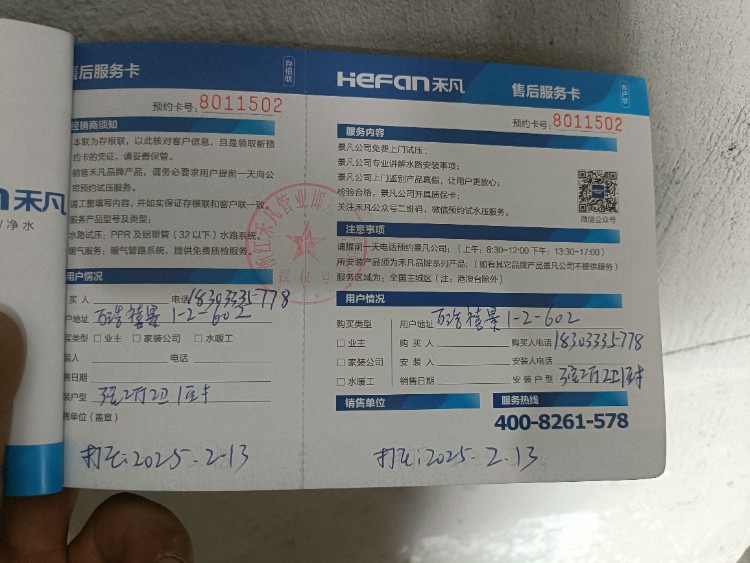 售后服务卡
存根联
预约卡号: 8011502
经销商须知
本联为存根联，以此核对客户信息，且是领取新预
约卡的凭证，请妥善保管。
销售禾凡品牌产品，请务必要求用户提前一天向公
司预约试压服务。
请工整填写内容，并如实保证存根联和客户联一致。
服务产品型号及类型：
水路试压：PPR及铝塑管（32以下）水路系统。
暖气服务：暖气管路系统，提供免费质检服务。
用户情况
买人 电话 18303335778
户地址 1-2-602
买类型 □业主 □家装公司 □水暖工
装人 电话
售日期
装户型 2厅2卫1
售单位（盖章）
打压:2025.2.13
an禾凡
/净水
HeFan禾凡 售后服务卡
客户联
预约卡号: 8011502
服务内容
景凡公司免费上门试压；
景凡公司专业讲解水路安装事项；
景凡公司上门鉴别产品真假，让用户更放心；
检验合格，景凡公司开具质保卡；
关注禾凡公众号二维码，微信预约试水压服务。
微信公众号
注意事项
请提前一天电话预约景凡公司：（上午：8:30-12:00 下午：13:30-17:00）
所安装产品须为禾凡品牌系列产品；（如有其它品牌产品景凡公司不提供服务）
服务区域为：全国主城区（注：港澳台除外）
用户情况
购买类型 用户地址 1-2-602
□业主 购买人 购买人电话 18303335778
□家装公司 安装人 安装人电话
□水暖工 销售日期 安装户型 2厅2卫1
销售单位 服务热线
400-8261-578
打压:2025.2.13
浙江禾凡管业